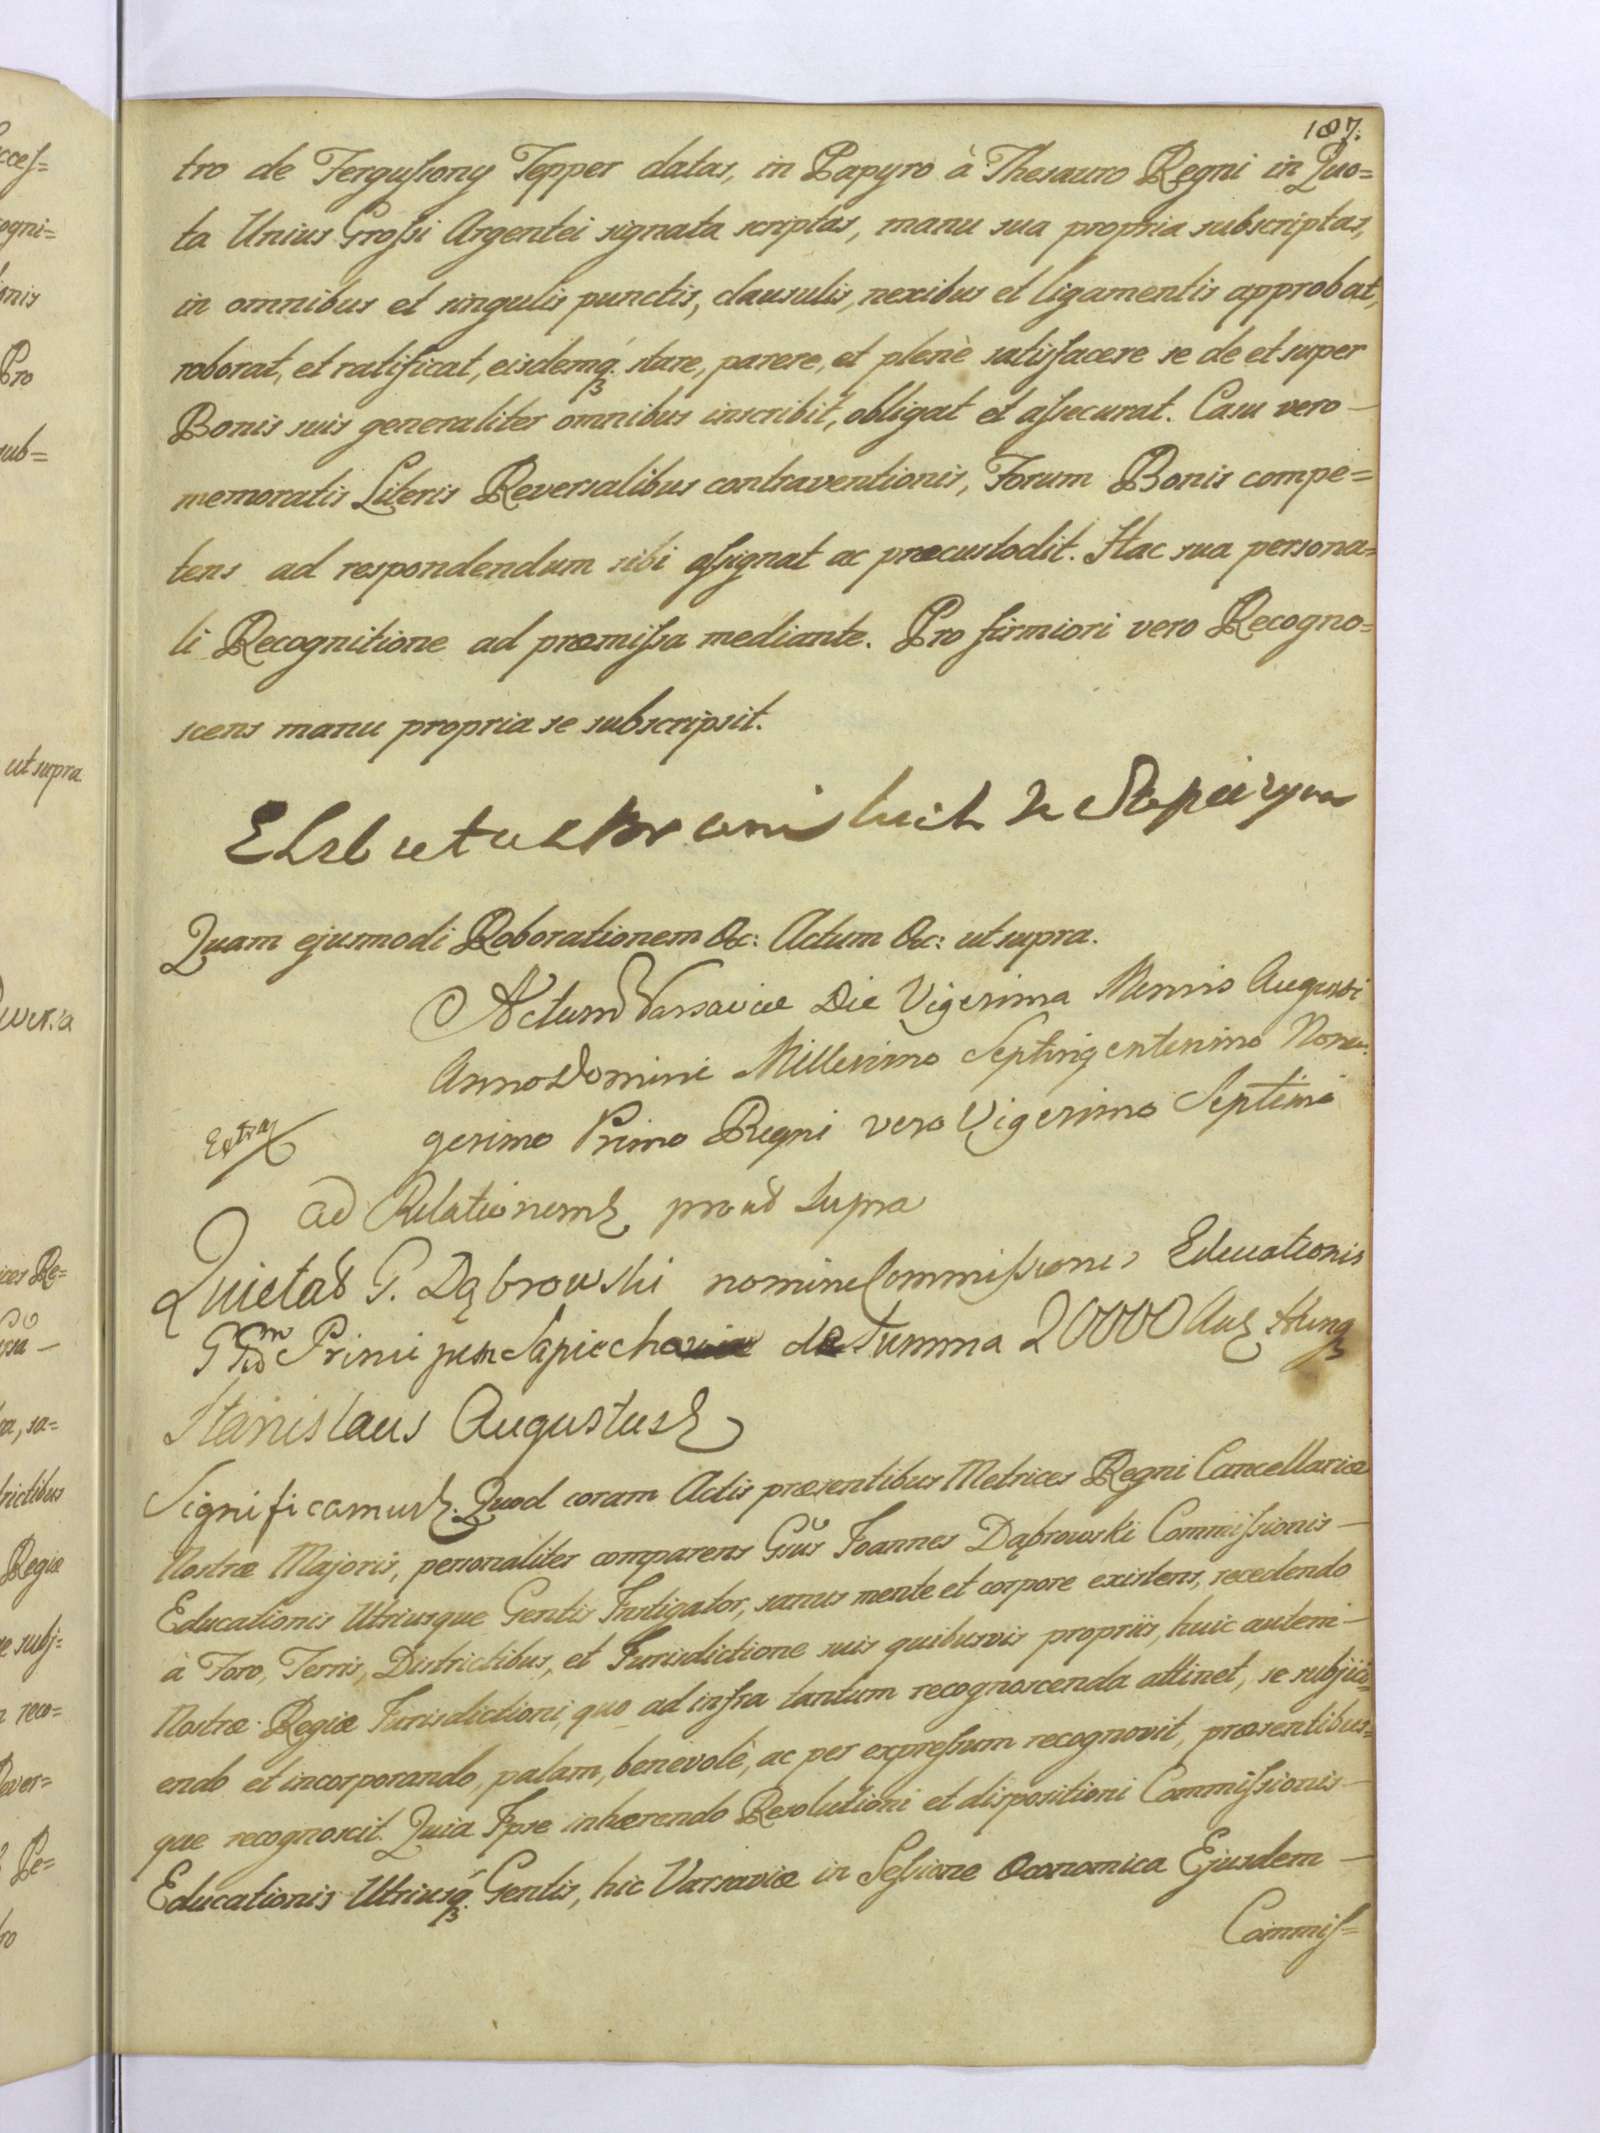 187.
tro de Fergusſony Tepper datas, in Papyro à Thesauro Regni in Quo=
ta Unius Groſsi Argentei signata scriptas, manu sua propria subscriptas,
in omnibus et singulis punctis, clausulis, nexibus et ligamentis approbat,
roborat, et ratificat, eisdemq́ꝫ stare, parere, et plenè satisfacere se de et super
Bonis suis generaliter omnibus inscribit, obligat et aſsecurat. Casu vero —
memoratis Literis Reversalibus contraventionis, Forum Bonis compe=
tens ad respondendum sibi aſsignat ac præcustodit. Hac sua persona=
li Recognitione ad præmiſsa mediante. Pro firmiori vero Recogno=
scens manu propria se subscripsit.
Quam ejusmodi Roborationem &c: Actum &c: ut supra.
Actum Varsaviæ Die Vigesima Mensis Augusti
Anno Domini Millesimo Septingentesimo Nona=
gesimo Primo Regni vero Vigesimo Septimo
Extra
ad Relationem prout supra
Quietat G. Dąbrowski nomine Commiſsionis Educationis
Principem Sapiecha de Summa 20000 Hung
Stanislaus Augustus
Significamus. Quod coram Actis præsentibus Metrices Regni Cancellariæ
Nostræ Majoris, personaliter comparens Gsus Joannes Dąbrowski Commiſsionis —
Educationis Utriusque Gentis Instigator, sanus mente et corpore existens, recedendo
à Foro, Terris, Districtibus, et Jurisdictione suis quibusvis propriis, huic autem —
Nostræ Regiæ Jurisdictioni, quo ad infra tantum recognoscenda attinet, se subjici=
endo et incorporando, palam, benevolè, ac per expreſsum recognovit, præsentibus=
que recognoscit. Quia Ipse inhærendo Resolutioni et dispositioni Commiſsionis —
Educationis Utriusq́ꝫ Gentis, hic Varsaviæ in Seſsione Oeconomica Ejusdem —
Commiſ=
cceſ=
ogni=
onis
Pro
sub=
ut supra
ces Re=
ra, sa=
trictibus
Regiæ
e subj=
reco=
Re=